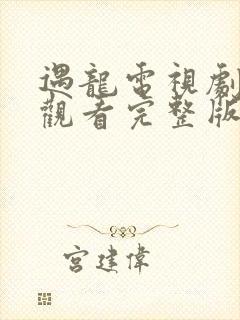 遇龍電視劇
觀看完整版
宮建偉